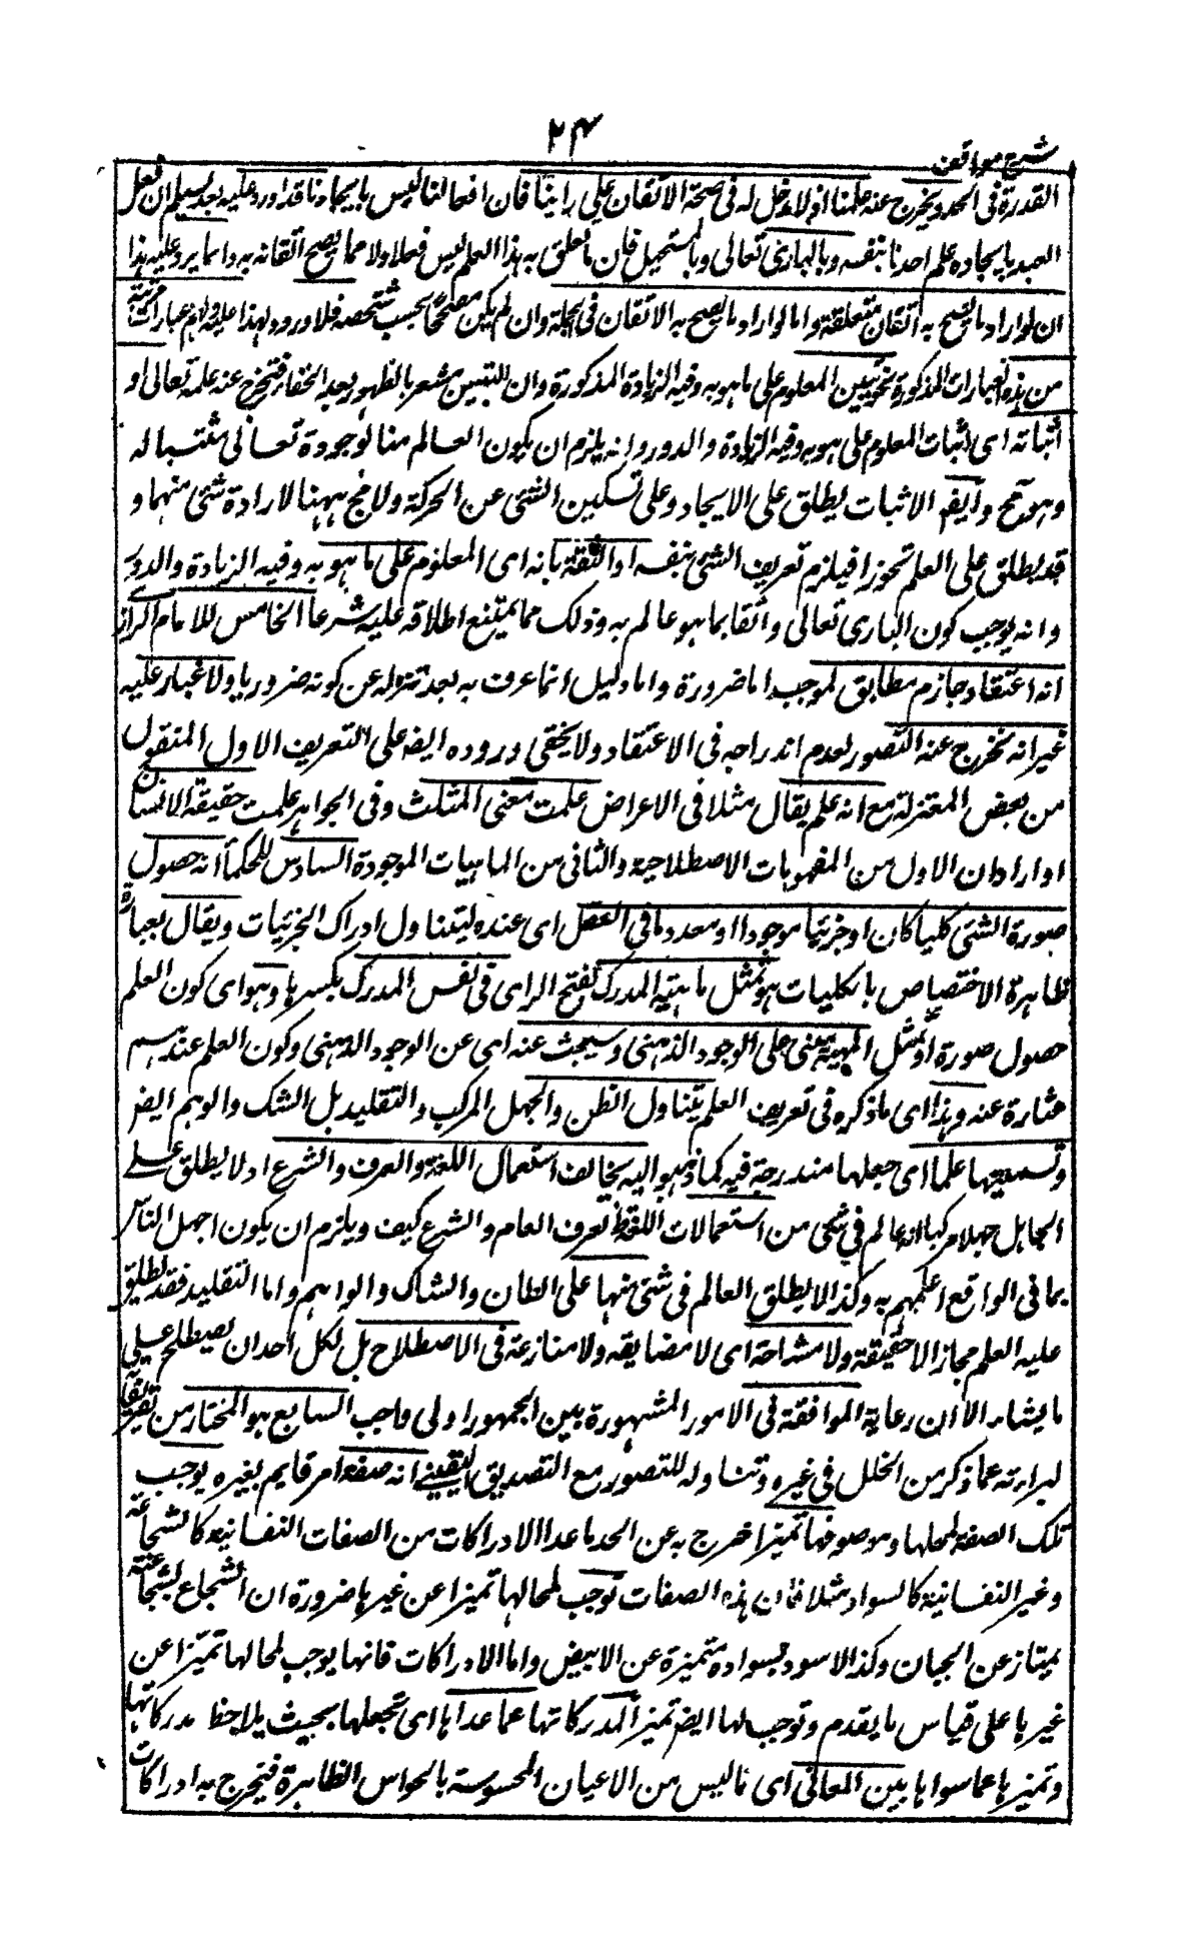 ۲۴
شرح مواقف
القدرة فى الحد ويخرج عنه علمنا اذ لا دخل له فى صحة الاتقان على رأينا فان افعالنا ليس بايجادنا قد اورد عليه بعد تسليم ان فعل
العبد بايجاده علم احدنا بنفسه وبالبارى تعالى وبالمستحيل فان ما تعلق به هذا العلم ليس فعلا ولا مما يصح اتقانه به وانما يرد عليه هذا
ان لو اراد ما يصح به اتقان متعلقة واما لو اراد ما يصح به الاتقان فى الجملة وان لم يكن مصححا بحسب شخصه فلا ورود لهذا عليه ولهم عبارات قريبة
من هذه العبارات المذكورة نحو تبيين المعلوم على ما هو به وفيه الزيادة المذكورة وان التبيين مشعر بالظهور بعد الخفاء فتخرج عنه علمه تعالى او
اثباته اى اثبات المعلوم على هو به وفيه الزيادة والدور وانه يلزم ان يكون العالم منا لوجودة تعالى مثبتا له
وهو مح وايضا الاثبات يطلق على الايجاد وعلى تسكين الشئ عن الحركة ولامج ههنا لارادة شئ منهما و
قد يطلق على العلم تجوزا فيلزم تعريف الشئ بنفسه او الثقة بانه اى المعلوم على ما هو به وفيه الزيادة والدور
وانه يوجب كون البارى تعالى واثقا بما هو عالم به وذلك مما يمتنع اطلاقه عليه شرعا الخامس للامام الرازى
انه اعتقاد جازم مطابق لموجب اما ضرورة واما دليل انما عرف به بعد تنزله عن كونه ضروريا ولا غبار عليه
غير انه يخرج عنه التصور لعدم اندراجه فى الاعتقاد ولا يخفى وروده ايضا على التعريف الاول المنقول
من بعض المعتزلة مع انه علم يقال مثلا فى الاعراض علمت معنى المثلث وفى الجواهر علمت حقيقة الانسان
او اراد ان الاول من المفهومات الاصطلاحية والثانى من الماهيات الموجودة السادس للحكماء انه حصول
صورة الشئ كليا كان او جزئيا موجودا او معدوما فى العقل اى عنده ليتناول ادراك الجزئيات ويقال بعبارة
ظاهرة الاختصاص بالكليات هو تمثل ماهية المدرك بفتح الراى فى نفس المدرك بكسرها وهو اى كون العلم
حصول صورة او تمثل المهية مبنى على الوجود الذهنى وسيبحث عنه اى عن الوجود الذهنى وكون العلم عندهم
عبارة عنه وهذا اى ما ذكره فى تعريف العلم يتناول الظن والجهل المركب والتقليد بل الشك والوهم ايضا
وتسميتها علما اى جعلها مندرجة فيه كما ذهبوا اليه يخالف استعمال اللغة والعرف والشرع اد لا يطلق على
الجاهل جهلا مركبا انه عالم فى شئ من استعمالات اللغة والعرف العام والشرع كيف ويلزم ان يكون اجهل الناس
بما فى الواقع اعلمهم به وكذا لا يطلق العالم فى شئ منها على الظان والشاك والواهم واما التقليد فقد يطلق
عليه العلم مجازا لا حقيقة ولا مشاحة اى لا مضايقه ولا منازعة فى الاصطلاح بل لكل احد ان يصطلح على
ما يشاء الا ان رعاية الموافقة فى الامور المشهورة بين الجمهور اولى واحب السابع هو المختار من تعريفاته
لبراءته عما ذكر من الخلل فى غيره وتناوله للتصور مع التصديق اليقينى انه صفة امر قايم بغيره يوجب
تلك الصفة لمحلها وموصوفها تميزا خرج به عن الحد ما عدا الادراكات من الصفات النفسانية كالشجاعة
وغير النفسانية كالسواد مثلا فان هذه الصفات توجب لمحالها تميزا عن غيرها ضرورة ان الشجاع بشجاعته
يمتاز عن الجبان وكذا الاسود بسواده متميزة عن الابيض واما الادراكات فانها يوجب لمحالها تميزا عن
غيرها على قياس ما يقدم وتوجب لها ايضا تميز المدركاتها عما عداها اى تجعلها بحيث يلاحظ مدركاتها
وتميزها عما سواها بين المعانى اى ما ليس من الاعيان المحسوسة بالحواس الظاهرة فيخرج به ادراكات